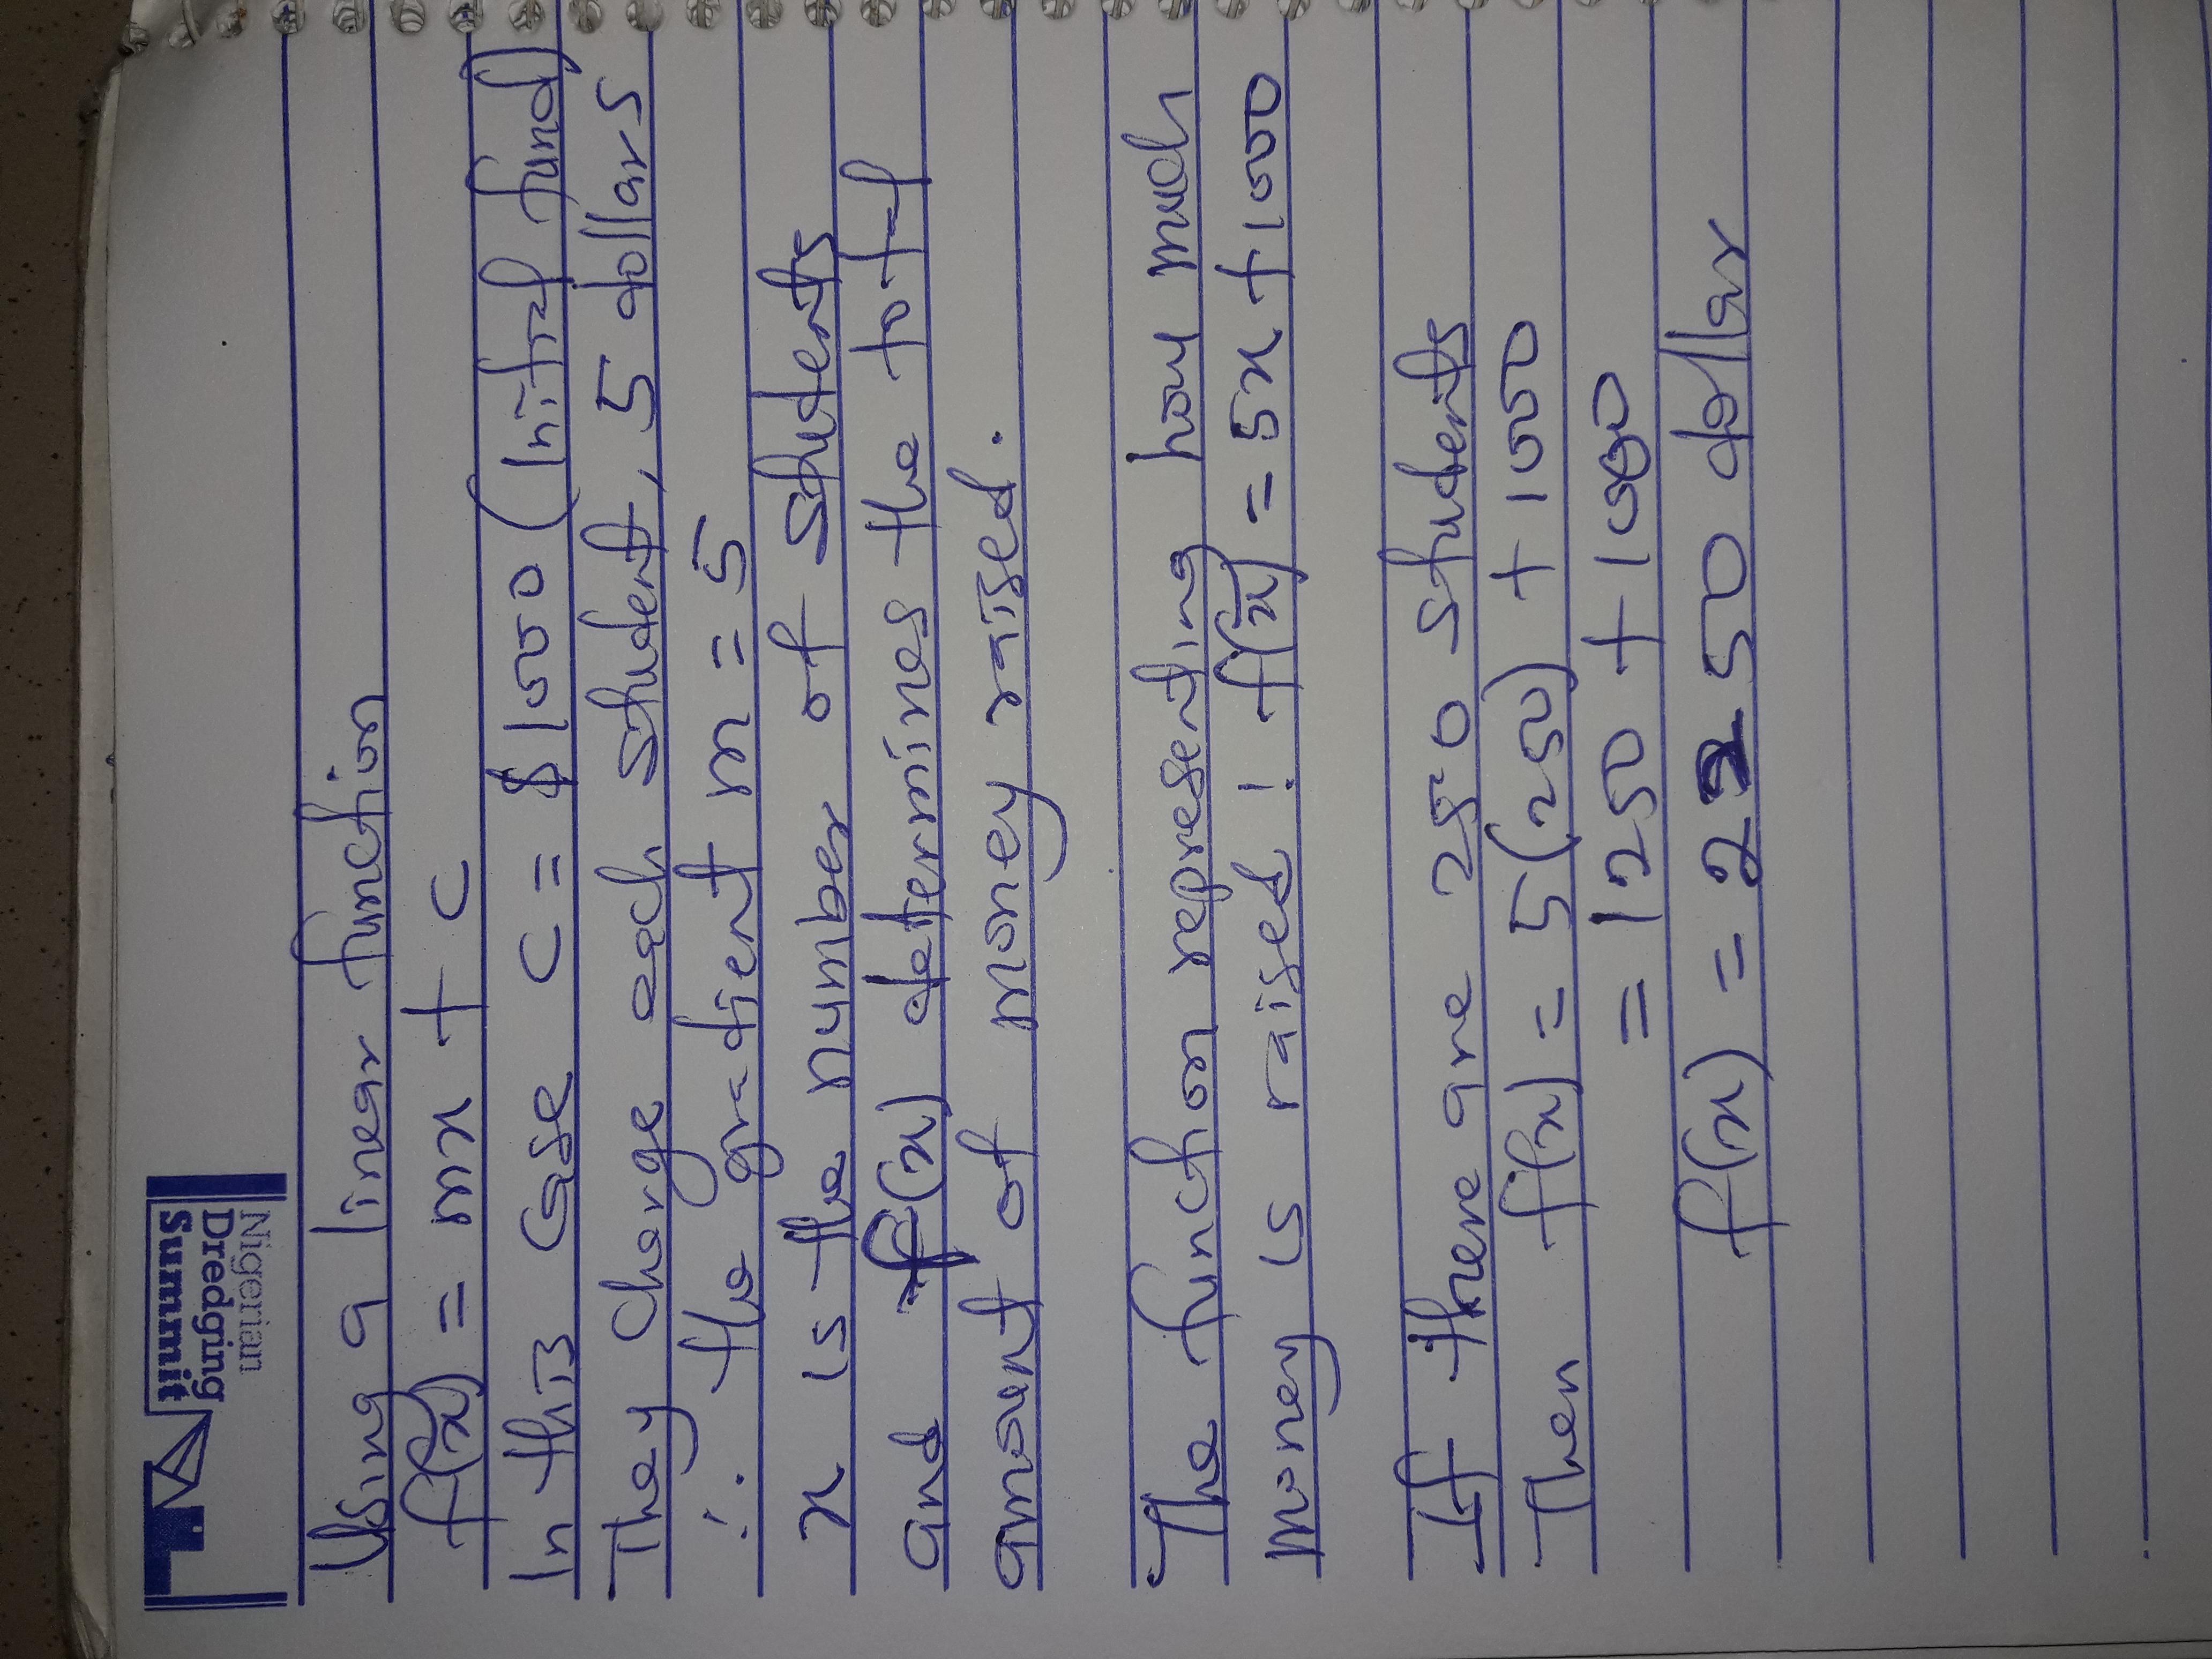 Nigerian
Dredging
Summit
Using a linear function
f(x) = mx + c
In this case c = $1000 (Initial fund)
They charge each student, 5 dollars
∴ the gradient m = 5
x is the number of students
and f(x) determines the total
amount of money raised.
The function representing how much
money is raised: f(x) = 5x + 1000
If there are 250 students
Then f(x) = 5(250) + 1000
= 1250 + 1000
f(x) = 2250 dollar